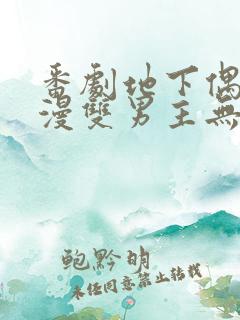 番劇地下偶
漫雙男主無
鲍黔明
未经同意禁止转载